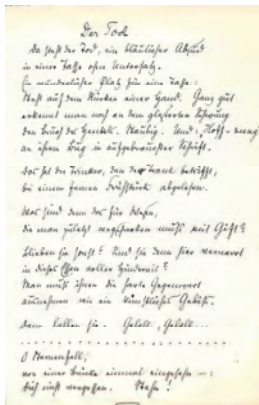 Der Tod
Da steht der Tod, ein bläulicher Absud
in einer Tasse ohne Untersatz.
Ein wunderlicher Platz für eine Tasse:
steht auf dem Rücken einer Hand. Ganz gut
erkennt man noch an dem glasierten Schwung
den Bruch des Henkels. Staubig. Und: „Hoff-nung“
an ihrem Bug in aufgebrauchter Schrift.
Das hat der Trinker, den der Trank betrifft,
bei einem fernen Frühstück abgelesen.
Was sind denn das für Wesen,
die man zuletzt wegschrecken muß mit Gift?
Blieben sie sonst? Sind sie denn hier vernarrt
in dieses Essen voller Hindernis?
Man muß ihnen die harte Gegenwart
ausnehmen wie ein künstliches Gebiß.
Dann lallen sie. Gelall, Gelall...
. . . . . . . . . . . . . . . . . . . . . .
O Sternenfall,
von einer Brücke einmal eingesehn —:
Dich nicht vergessen. Stehn!